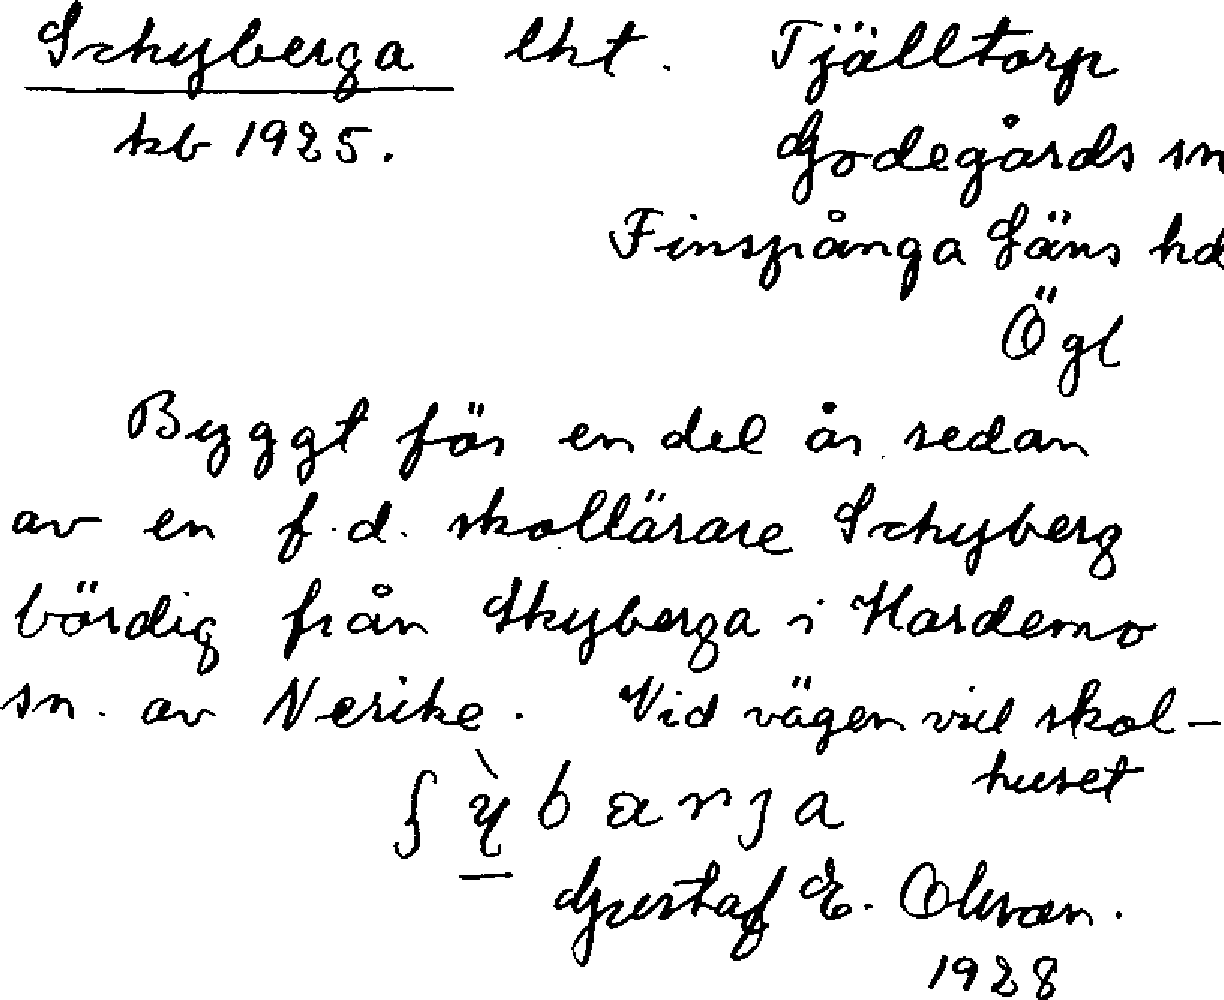 Schyberga lht. Tjälltorp
kb 1925. Godegårds sn
Finspånga Läns hd
Ögl
Byggt för en del år sedan
av en f.d. skollärare Schyberg
bördig från Skyberga i Hardemo
sn. av Nerike. Vid vägen vid skol-
huset
ʃỳbarja
Gustaf E. Olsson.
1928